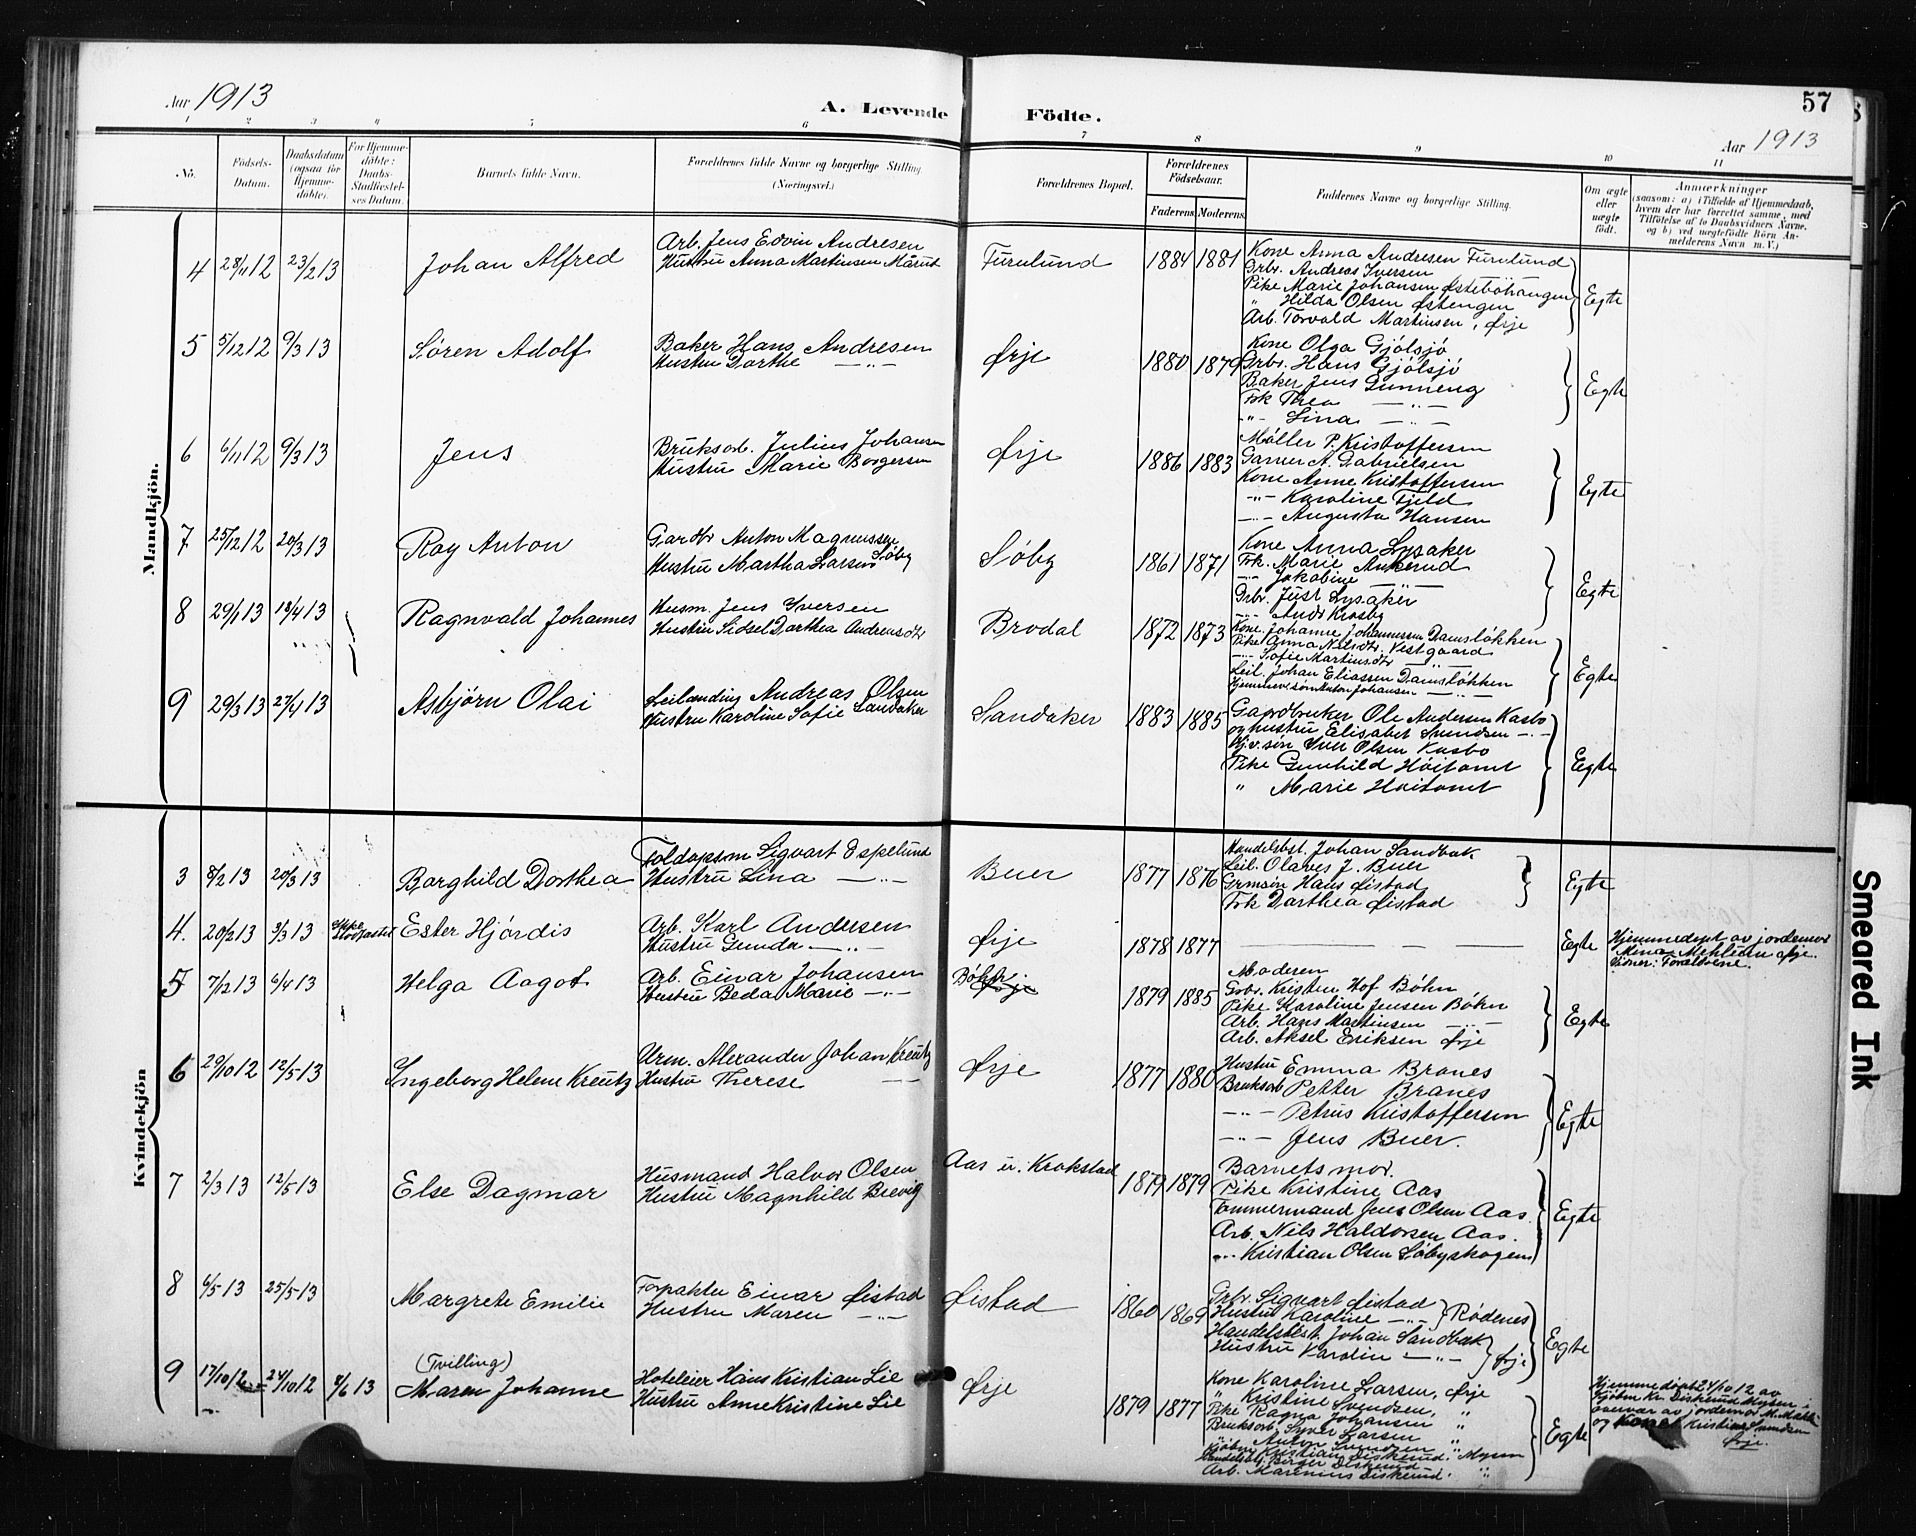 Aar 1913
A. Levende Födte.
57
Aar 1913
1 2 3 4 5 6 7 8 9 10 11
No.
Födsels-Datum.
Daabsdatum (ogsaa for Hjemme-döbte).
For Hjemme-döbte: Daabs-Stadfæstel-ses Datum.
Barnets fulde Navn.
Forældrenes fulde Navne og borgerlige Stilling. (Næringsvei.)
Forældrenes Bopæl.
Forældrenes Födselsaar.
Faderens
Moderens.
Faddernes Navne og borgerlige Stilling.
Om ægte eller uægte födt.
Anmærkninger
(saasom: a) i Tilfælde af Hjemmedaab, hvem der har forrettet samme, med Tilföielse af to Daabsvidners Navne, og b) ved uægtefödte Börn An-melderens Navn m. V.)
Mandkjön.
4 28/11 12 23/2 13 Johan Alfred
Arb. Jens Edvin Andresen
Hustru Anna Martinsen Mårud
Furulund 1884 1881
Kone Anna Andresen Furulund
Grbr. Andreas Iversen
Pike Marie Johansen Østeböhangen
" Hilda Olsen Østengen
Arb. Torvald Martinsen, Ørje
Egte
5 5/12 12 9/3 13 Søren Adolf
Baker Hans Andresen
Hustru Dorthe —"—
Ørje 1880 1879
Kone Olga Gjölsjö
Grbr. Hans Gjölsjö
Baker Jens Gunneng
Frk Thea —"—
—"— Lina —"—
Egte
6 6/11 12 9/3 13 Jens
Bruksarb. Julius Johansen
Hustru Marie Borgersen
Ørje 1886 1883
Møller P. Kristoffersen
Garver A. Gabrielsen
Kone Anne Kristoffersen
—"— Karoline Fjeld
—"— Augusta Hansen
Egte
7 25/12 12 20/3 13 Roy Anton
Gardbr Anton Magnussen
Hustru Martha Larsen Søby
Søby 1861 1871
Kone Anna Lysaker
Frk. Marie Ankerud
—"— Jakobine —"—
Grbr. Just Lysaker
—"— Andr Krosby
Egte
8 29/1 13 13/4 13 Ragnvald Johannes
Husm. Jens Iversen
Hustru Sidsel Dorthea Andreasdtr
Brodal 1872 1873
Kone Johanne Johannessen Damsløkken
Pike Anna Nilsdtr. Vestgaard
—"— Sofie Martinsdtr —"—
Leil. Johan Eliassen Damsløkken
Hjemmev. søn Anton Johansen —"—
Egte
9 29/3 13 27/4 13 Asbjørn Olai
Leilending Andreas Olsen
Hustru Karoline Sofie Sandaker
Sandaker 1883 1885
Gardbruker Ole Andersen Kasbo
og hustru Elisabet Svendsen —"—
Hjv. søn Iver Olsen Kasbo
Pike Gunhild Høitomt
" Marie Høitomt
Egte
Kvindekjön
3 8/2 13 20/3 13 Borghild Dorthea
Toldopsm Sigvart Espelund
Hustru Lina —"—
Buer 1877 1876
Handelsbst. Johan Sandbæk
Leil. Olaves J. Buer
Grmsøn Hans Øistad
Frk Dorthea Øistad
Egte
4. 20/2 13 3/3 13 Ikke stadfæstet Ester Hjördis
Arb. Karl Andersen
Hustru Gunda —"—
Ørje 1878 1877
— — —
Egte
Hjemmedøpt av jordemor
Mina Mehlum Ørje.
Vidner: Forældrene.
5 7/12 13 6/4 13 Helga Aagot
Arb. Einar Johansen
Hustru Beda Marie —"—
Bøhn Ørje 1879 1885
Moderen
Grbr. Kristen Hof Bøhn
Pike Karoline Jensen Bøhn
Arb. Hans Martinsen —"—
Arb. Aksel Eriksen Ørje
Egte
6 29/10 12 12/5 13 Ingeborg Helene Kreutz
Urm. Alexander Johan Kreutz
Hustru Therese —
Ørje 1877 1880
Hustru Emma Branes
Bruksarb Petter Branes
—"— Petrus Kristoffersen
—"— Jens Buer.
Egte
7 2/3 13 12/5 13 Else Dagmar
Husmand Halvor Olsen
Hustru Magnhild Brevig
Aas u. Krokstad 1879 1879
Barnets mor.
Pike Kristine Aas
Tømmermand Jens Olsen Aas.
Arb. Nils Haldorsen Aas.
—"— Kristian Olsen Søbyskogen
Egte
8 6/5 13 25/5 13 Margrete Emilie
Forpakter Einar Øistad
Hustru Maren —"—
Øistad 1860 1869
Grbr. Sigvart Øistad
Hustru Karoline —"— } Rødenes
Handelsbest. Johan Sandbæk
Hustru Karolin —"— } Ørje
Egte
9 17/10 12 24/10 12 8/6 13 (Tvilling)
Maren Johanne
Hoteleier Hans Kristian Lie
Hustru Anne Kristine Lie
Ørje 1879 1877
Kone Karoline Larsen, Ørje
" Kristine Svendsen, "
Pike Ragna Johansen "
Bruksarb. Syver Larsen "
" Anton Svendsen "
Kjøbm. Kristian Diskerud. Mysen
Handelsbtj. Birger Diskerud "
Arb. Marenius Diskerud. "
Egte
Hjemmedøpt 24/10 12 av
Kjøbm Kr. Diskerud Mysen i
overvær av jordemor M. Mehl
og Kone Kristine Svendsen
Ørje.
Smeared Ink